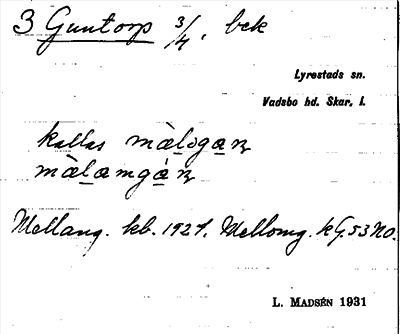 3 Guntorp 3/4, bek
Lyrestads sn.
Vadsbo hd. Skar. l.
kallas màlogaṇ
màlamgàṇ
Mellang. kb. 1927. Mellomg. kG. 53 NO.
L. MADSÉN 1931